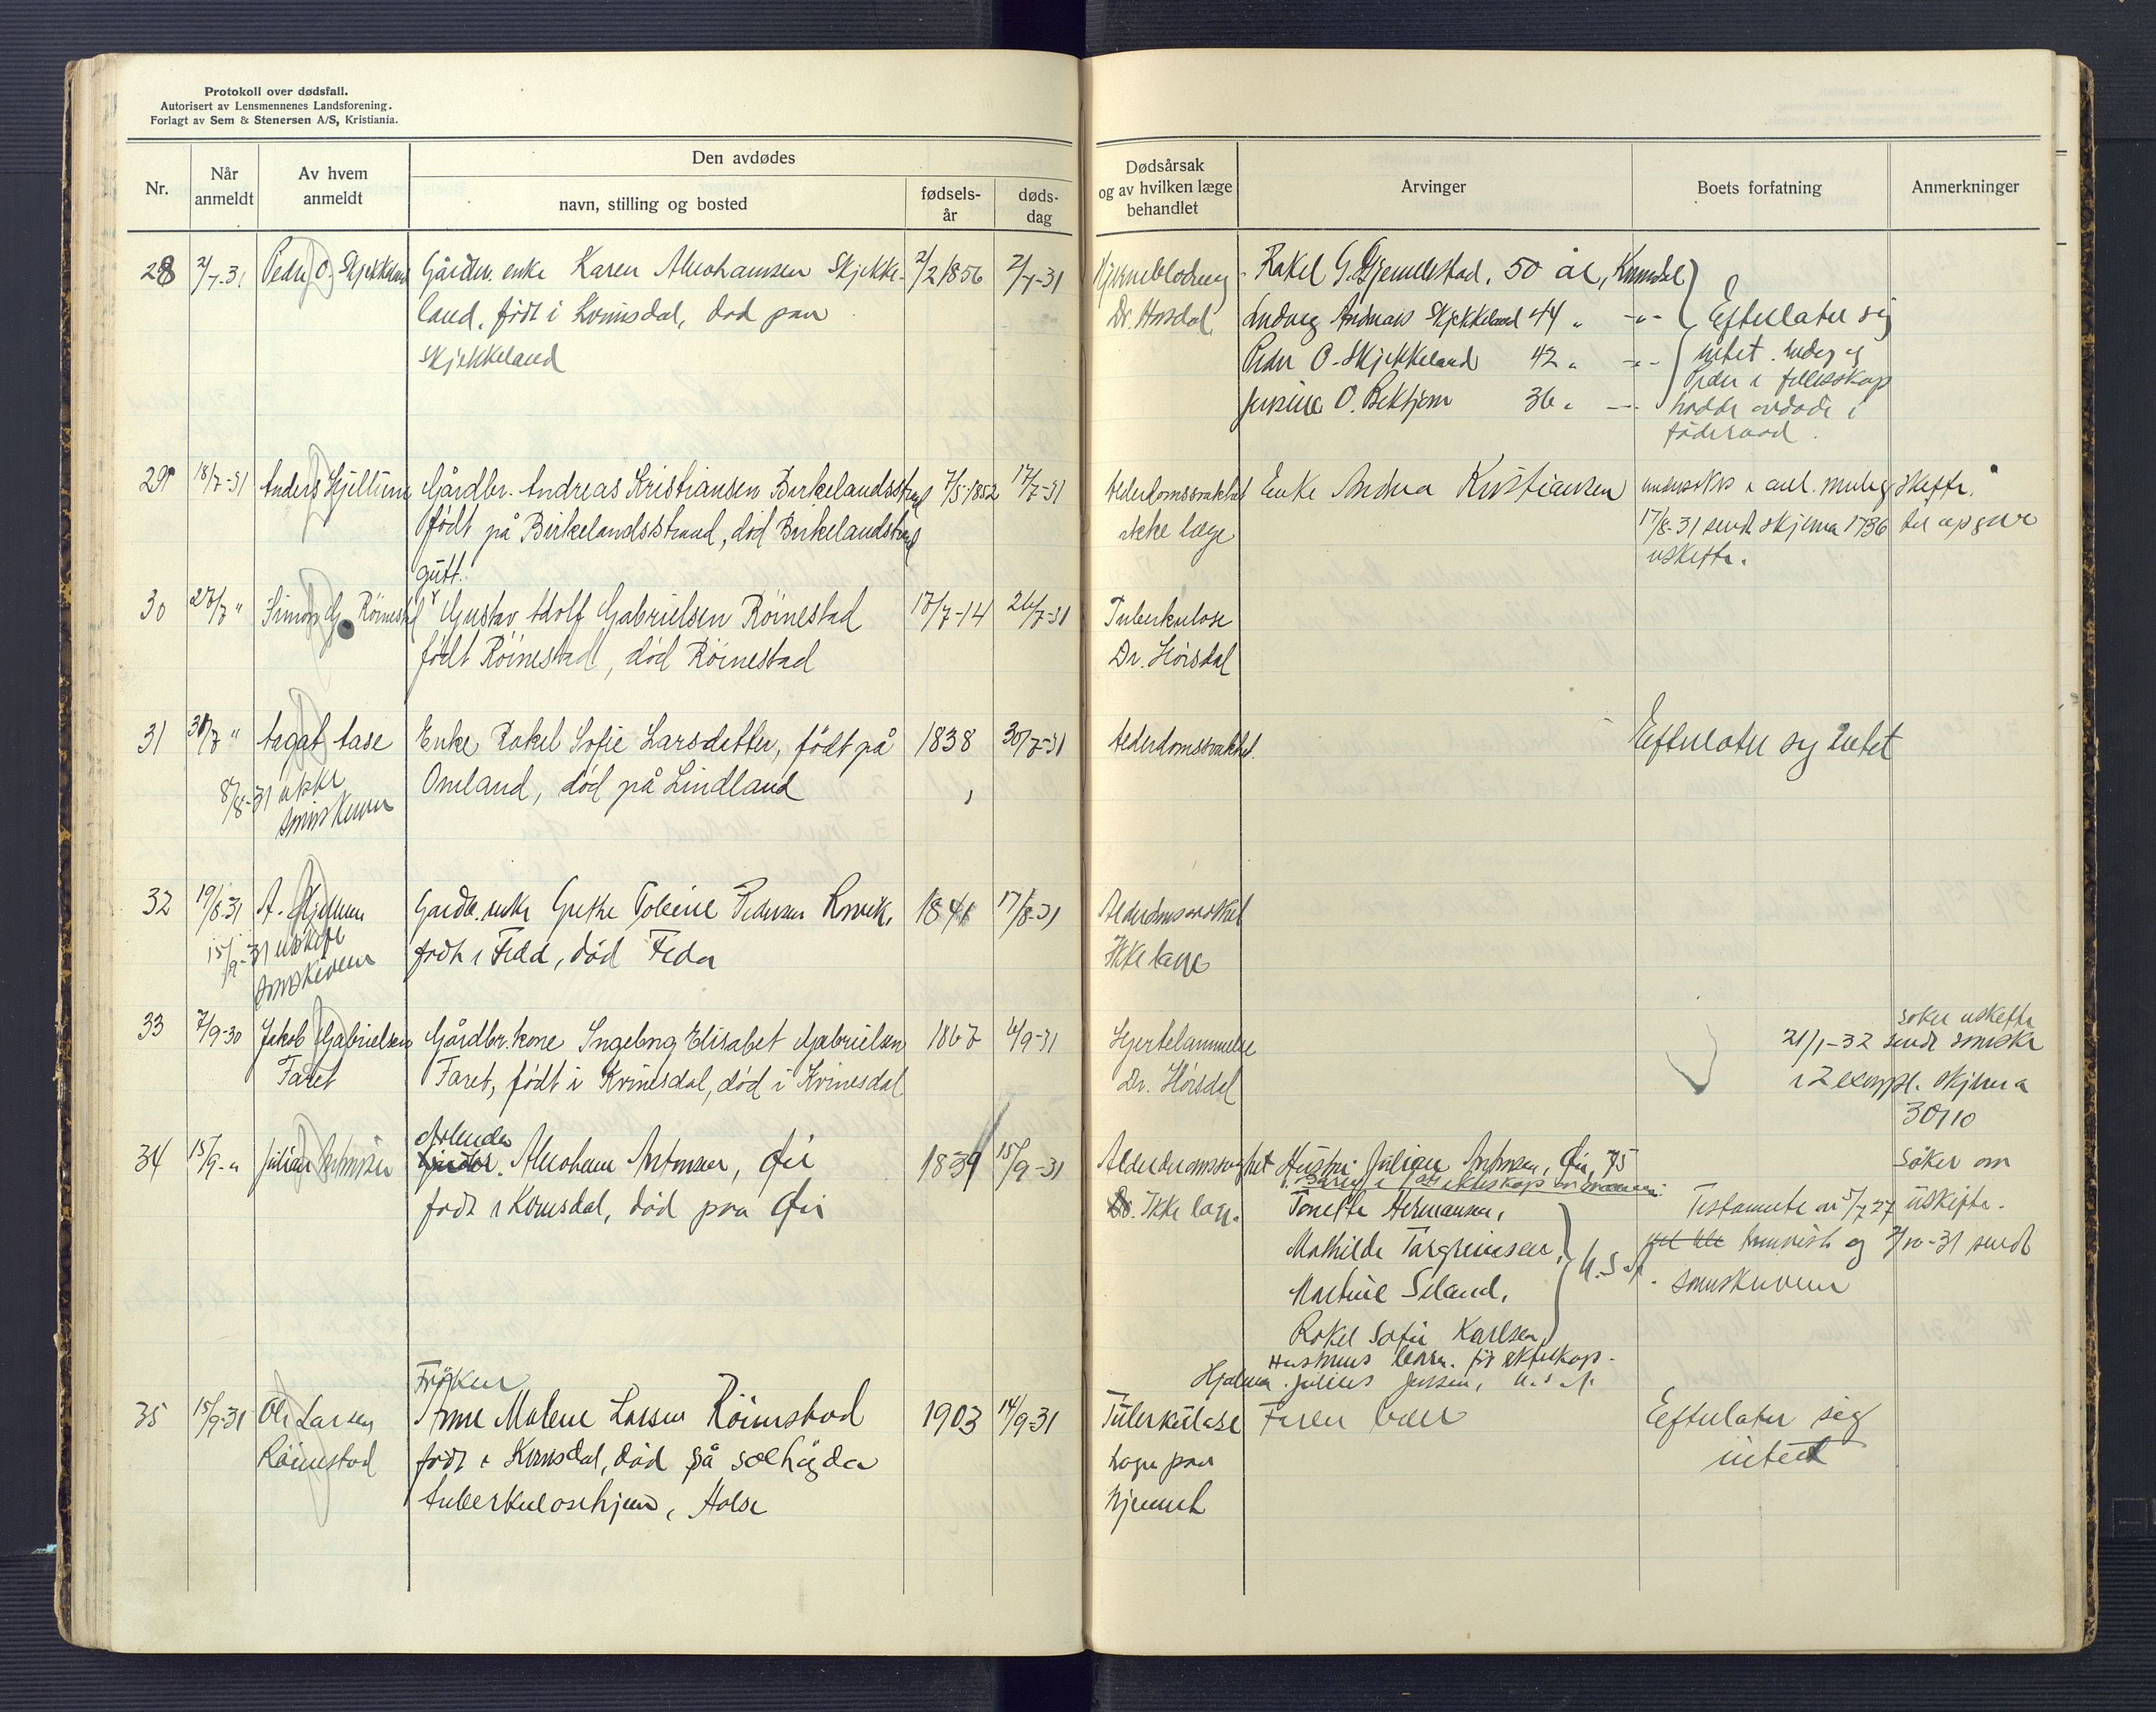 Protokoll over dødsfall.
Autorisert av Lensmennenes Landsforening.
Forlagt av Sem & Stenersen A/S, Kristiania.
Nr.
Når anmeldt
Av hvem anmeldt
Den avdødes
navn, stilling og bosted
fødsels-år
døds-dag
Dødsårsak og av hvilken læge behandlet
Arvinger
Boets forfatning
Anmerkninger
28 2/7-31 Peder O. Skjekkeland Gårdbr. enke Karen Abrahamsen Skjekke- 2/2 1856 2/7-31
land, født i Kvinesdal, død paa
Skjekkeland
Hjerneblødning Rakel G. Gjemlestad, 50 år, Kvinesdal
Dr. Hørsdal Ludvig Andreas Skjekkeland 44 " -"- Efterlater sig
Peder O. Skjekkeland 42 " -"- intet. Ludvig og
Peder i fellesskap
Jensine O. Rektjern 36 " -"- hadde avdøde i
føderaad.
29 18/7-31 Anders Hjellum Gårdbr. Andreas Kristiansen Birkelandsstrand 7/5-1852 17/7-31
født på Birkelandsstrand, død Birkelandstrand
Alderdomssvakhet Enke Andrea Kristiansen skifte.
ikke læge 17/8-31 sendt skjema 1736 til
uskifte.
gutt.
30 27/7 " Simon G. Röinestad Gustav Adolf Gabrielsen Röinestad 17/7-14 26/7-31
født Röinestad, död Röinestad
Tuberkulose
Dr. Hörsdal
31 30/7 " Aagot Aase Enke Rakel Sofie Larsdatter, født på 1838 30/7-31
Omland, död på Lindland
8/8-31
sorenskriveren
Alderdomssvakhet. Efterlater sig intet
32 19/8-31 A. Hjellum Gårdbr. enke Grethe Toleine Pedersen Kvavik, 1841 17/8-31
født i Feda, død Feda
15/9-31 uskifte
sorenskriveren
Alderdomssvakhet
Ikke læge
33 7/9-30 Jakob Gabrielsen Gårdbr. kone Ingeborg Elisabet Gabrielsen 1867 4/9-31
Faret Faret, födt i Kvinesdal, död i Kvinesdal
Hjertelammelse
Dr. Hörsdal
søker uskifte
21/1-32 sendt sorenskr
i 2 exempl. skjema
30110
34 15/9-" Julian Antonsen
Gårdbr. Abraham Antonsen, Øie 1839 15/9-31
født i Kvinesdal, død paa Øie
Alderdomssvaghet Hustru Julian Antonsen, Øie, 75
Dr. Ikke læge. Tonette Hermansen,
Mathilde Torgrimsen,
Martine Seland,
Rakel Sofie Karlsen
U.S.A.
Hustruens barn før ektesk.
Hjalmar Julius Jensen, U.S.A.
Testamente av 5/7 27
og 7/10-31 sendt
sorenskriveren
søker om
uskifte.
Frøken
35 15/9-31 Ole Larsen Anne Malene Larsen Röinestad 1903 14/9-31
Röinestad født i Kvinesdal, død på Solhögda
tuberkulosehjem, Halse
Tuberkulose
Læge paa
hjemmet
Efterlater sig
intet